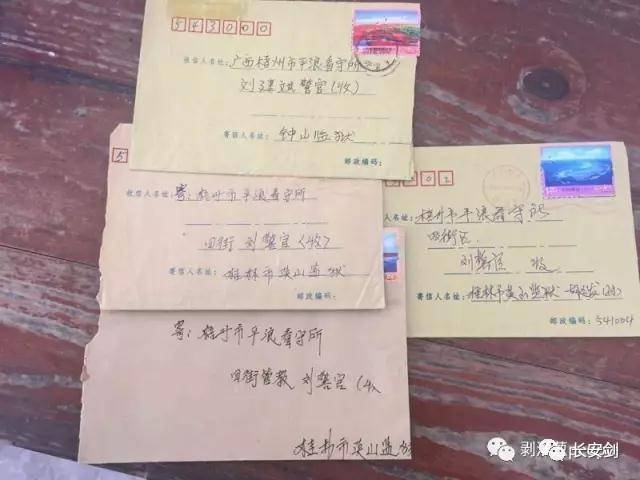 543000
收信人名址:广西梧州市平浪看守所
刘 警官(收)
寄信人名址: 钟山监狱
邮政编码:
5
收信人名址:寄:梧州市平浪看守所
四街 刘警官(收)
寄信人名址:桂林市英山监狱
邮政编码:
收信人名址:梧州市平浪看守所
四街区
刘警官 收
寄信人名址:桂林市英山监狱
邮政编码:541004
寄:梧州市平浪看守所
四街管教 刘警官(收
桂林市英山监狱
长安剑